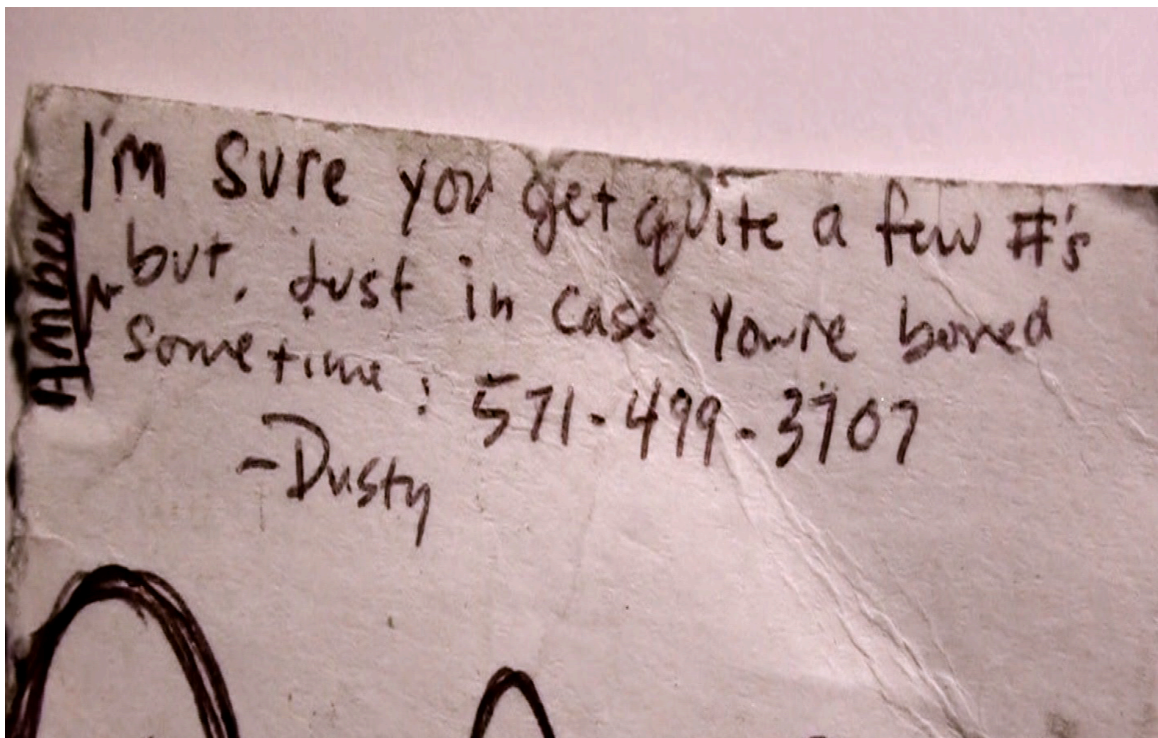 I'm sure you get quite a few #'s
but, Just in case You're bored
sometime: 571-499-3707
-Dusty
Amber